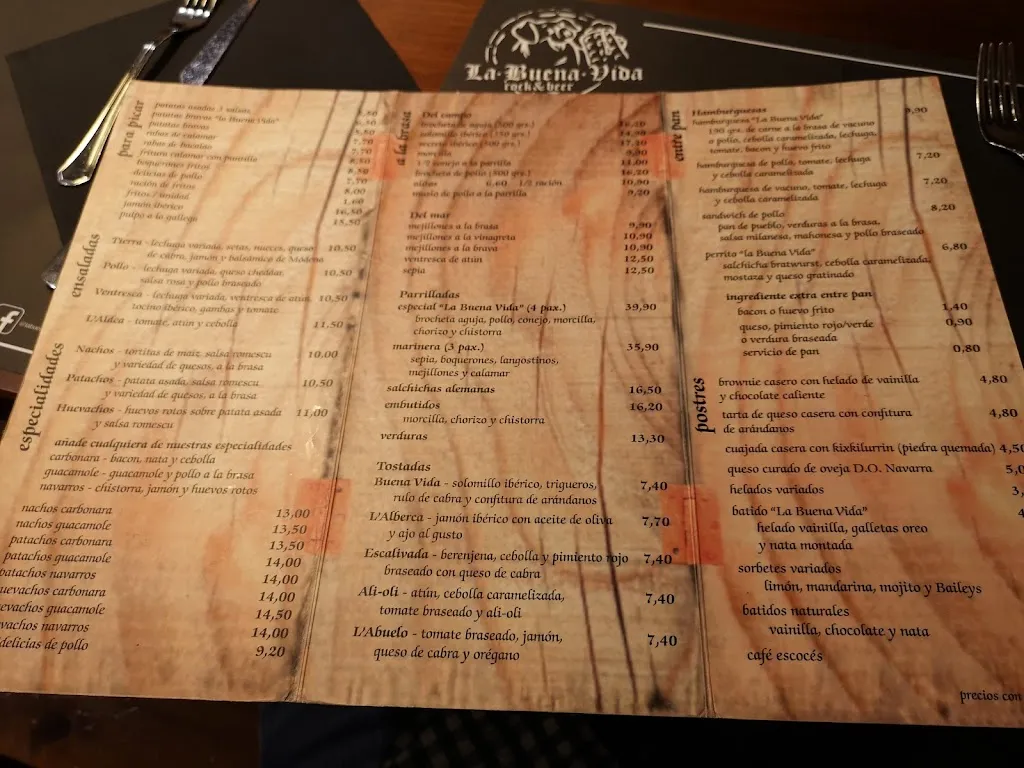 La·Buena·Vida
rock&beer
para picar
patatas asadas 3 salsas
patatas bravas "la Buena Vida"
patatas bravas
rabas de calamar 7,70
rabas de bacalao 7,70
fritura calamar con puntilla 8,50
boquerones fritos 8,50
delicias de pollo 7,70
ración de fritos 8,00
fritos / unidad 1,60
jamón ibérico 16,50
pulpo a la gallega 15,50
ensaladas
Tierra - lechuga variada, setas, nueces, queso 10,50
de cabra, jamón y balsámico de Módena
Pollo - lechuga variada, queso cheddar, 10,50
salsa rosa y pollo braseado
Ventresca - lechuga variada, ventresca de atún, 10,50
tocino ibérico, gambas y tomate
L'Aldea - tomate, atun y cebolla 11,50
especialidades
Nachos - tortitas de maiz, salsa romescu 10,00
y variedad de quesos, a la brasa
Patachos - patata asada, salsa romescu 10,50
y variedad de quesos, a la brasa
Huevachos - huevos rotos sobre patata asada 11,00
y salsa romescu
añade cualquiera de nuestras especialidades
carbonara - bacon, nata y cebolla
guacamole - guacamole y pollo a la brasa
navarros - chistorra, jamón y huevos rotos
nachos carbonara 13,00
nachos guacamole 13,50
patachos carbonara 13,50
patachos guacamole 14,00
patachos navarros 14,00
uevachos carbonara 14,00
evachos guacamole 14,50
vachos navarros 14,00
delicias de pollo 9,20
a la brasa
Del campo
brocheta de aguja (500 grs.)
solomillo ibérico (350 grs.)
secreto ibérico (300 grs.)
morcilla 9,90
1/2 conejo a la parrilla 11,00
brocheta de pollo (500 grs.) 16,20
alitas 6,60 1/2 ración 10,90
muslo de pollo a la parrilla 9,20
Del mar
mejillones a la brasa 9,90
mejillones a la vinagreta 10,90
mejillones a la brava 10,90
ventresca de atún 12,50
sepia 12,50
Parrilladas
especial "La Buena Vida" (4 pax.) 39,90
brocheta aguja, pollo, conejo, morcilla,
chorizo y chistorra
marinera (3 pax.) 35,90
sepia, boquerones, langostinos,
mejillones y calamar
salchichas alemanas 16,50
embutidos 16,20
morcilla, chorizo y chistorra
verduras 13,30
Tostadas
Buena Vida - solomillo ibérico, trigueros, 7,40
rulo de cabra y confitura de arándanos
L'Alberca - jamón ibérico con aceite de oliva 7,70
y ajo al gusto
Escalivada - berenjena, cebolla y pimiento rojo 7,40
braseado con queso de cabra
Ali-oli - atún, cebolla caramelizada, 7,40
tomate braseado y ali-oli
L'Abuelo - tomate braseado, jamón, 7,40
queso de cabra y orégano
entre pan
Hamburguesas
hamburguesa "La Buena Vida" 8,90
190 grs. de carne a la brasa de vacuno
o pollo, cebolla caramelizada, lechuga,
tomate, bacon y huevo frito
hamburguesa de pollo, tomate, lechuga 7,20
y cebolla caramelizada
hamburguesa de vacuno, tomate, lechuga 7,20
y cebolla caramelizada
sandwich de pollo 8,20
pan de pueblo, verduras a la brasa,
salsa milanesa, mahonesa y pollo braseado
perrito "la Buena Vida" 6,80
salchicha bratwurst, cebolla caramelizada,
mostaza y queso gratinado
ingrediente extra entre pan
bacon o huevo frito 1,40
queso, pimiento rojo/verde 0,90
o verdura braseada
servicio de pan 0,80
postres
brownie casero con helado de vainilla 4,80
y chocolate caliente
tarta de queso casera con confitura 4,80
de arándanos
cuajada casera con kixkilurrin (piedra quemada) 4,50
queso curado de oveja D.O. Navarra 5,0
helados variados 3,
batido "La Buena Vida" 4
helado vainilla, galletas oreo
y nata montada
sorbetes variados
limón, mandarina, mojito y Baileys
batidos naturales
vainilla, chocolate y nata
café escocés
precios con